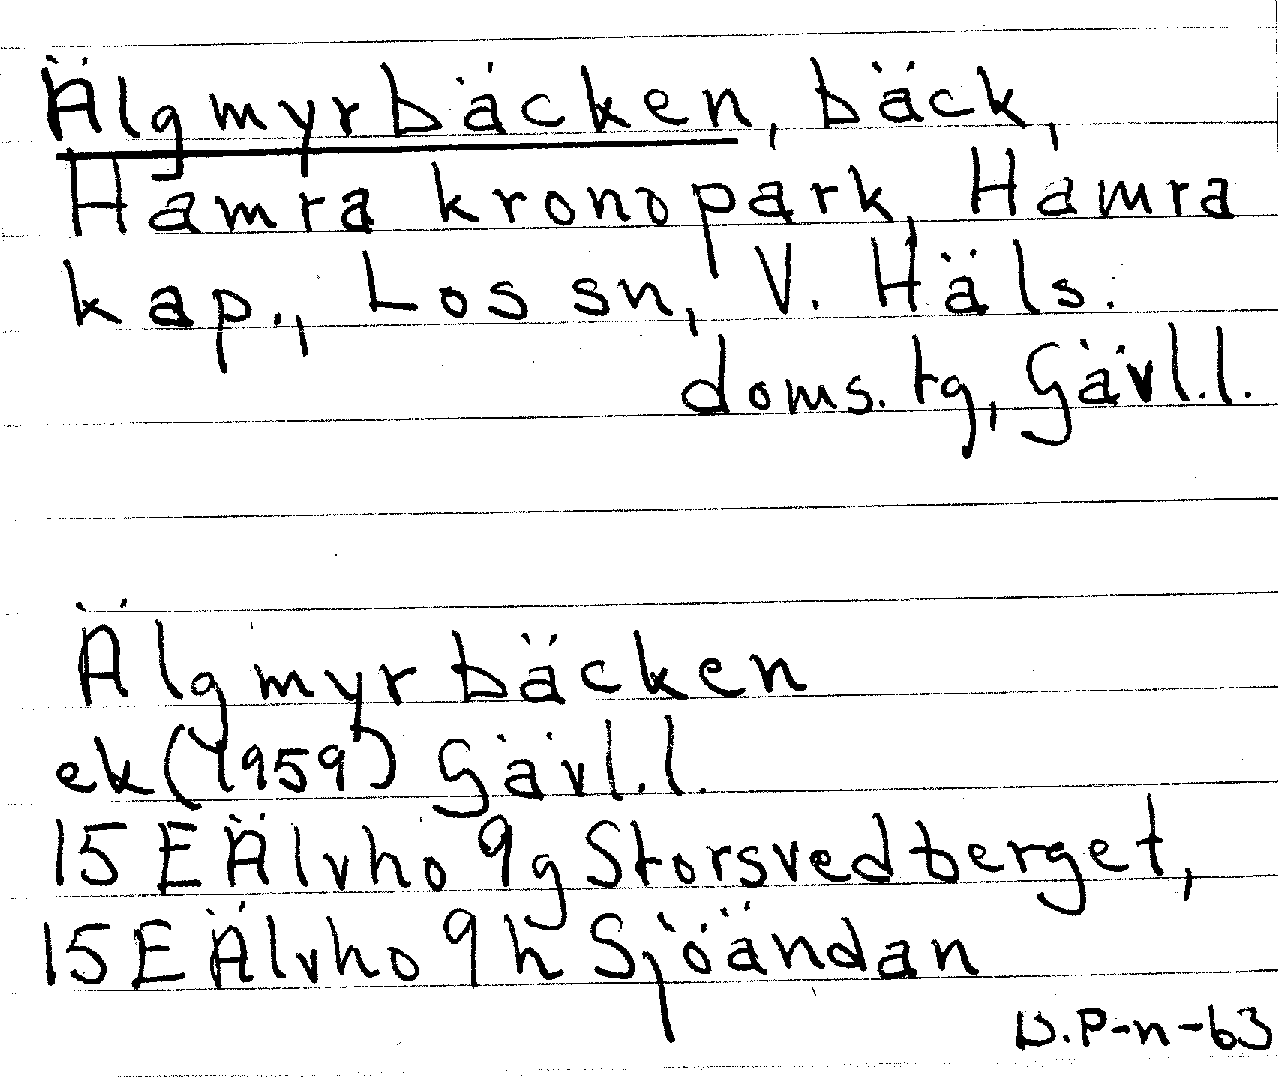 Älgmyrbäcken, bäck,
Hamra kronopark, Hamra
kap., Los sn, V. Häls.
doms. tg, Gävl.l.
Älgmyrbäcken
ek (1959) Gävl.l.
15 E Älvho 9g Storsvedberget,
15 E Älvho 9h Sjöändan
B.P-n-63